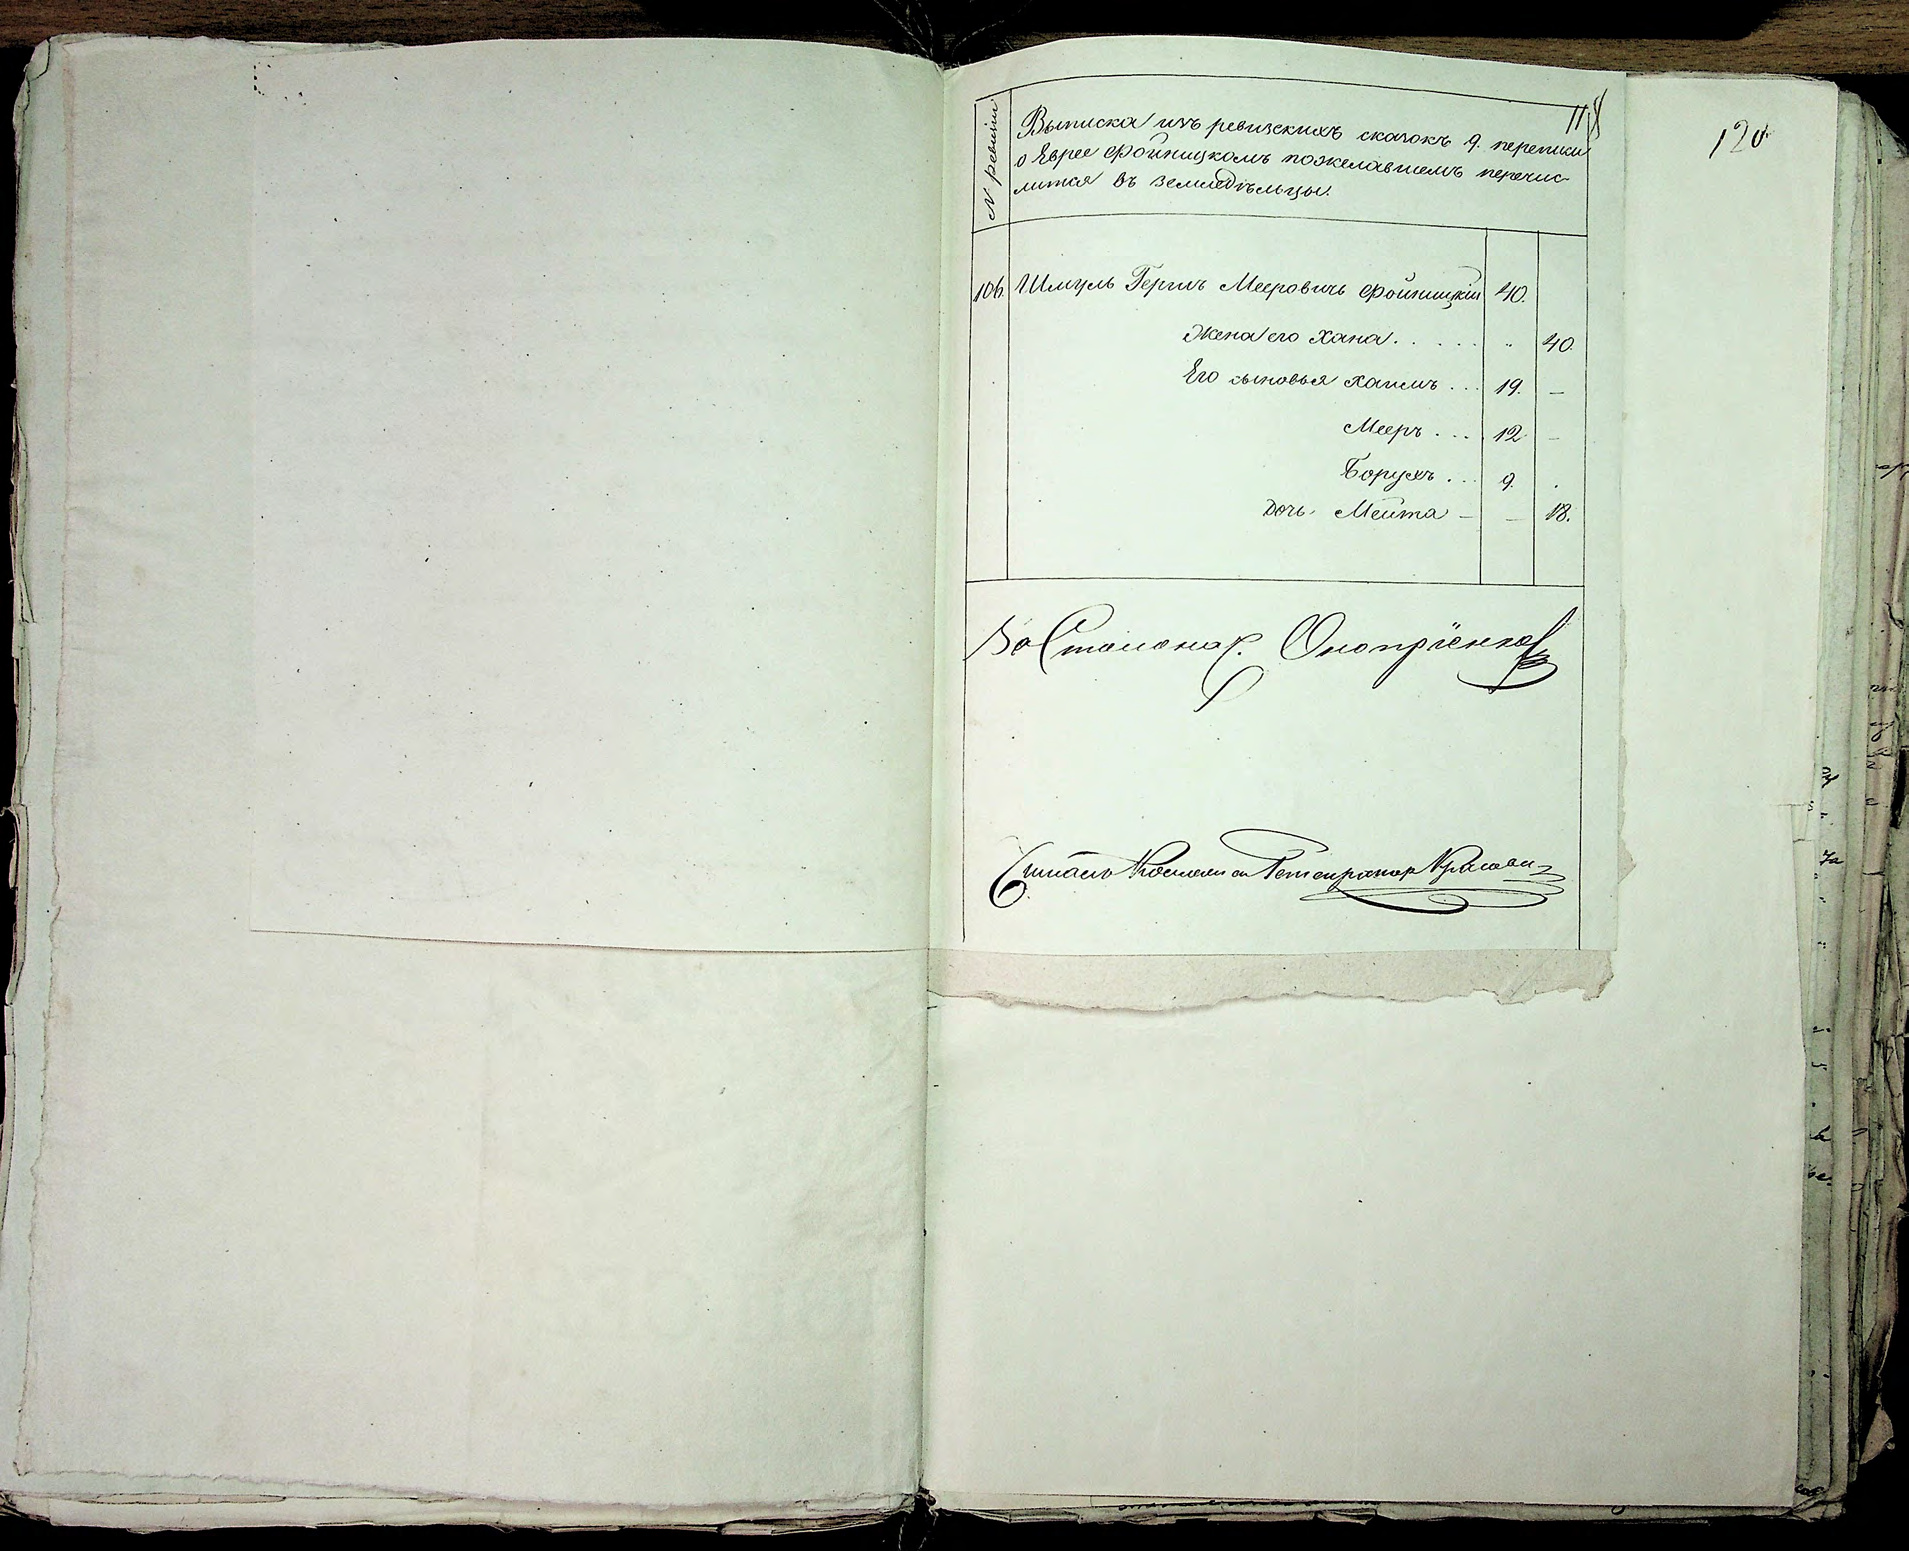 118
120
N ревизіи
Выписка изъ ревизскихъ сказокъ 9. переписи
о Еврее Фойницкомъ пожелавшемъ перечис-
литься въ земледѣльцы.
106. Шмуль Гершъ Мееровичъ Фойницкій 40.
Жена его Хана . . . . . „ 40.
Его сыновья Хаимъ . . . 19. —
Мееръ . . . 12. —
Борухъ . . . 9. .
дочь Мейта — — 18.
За Столонач. Оноприенко
Регистраторъ